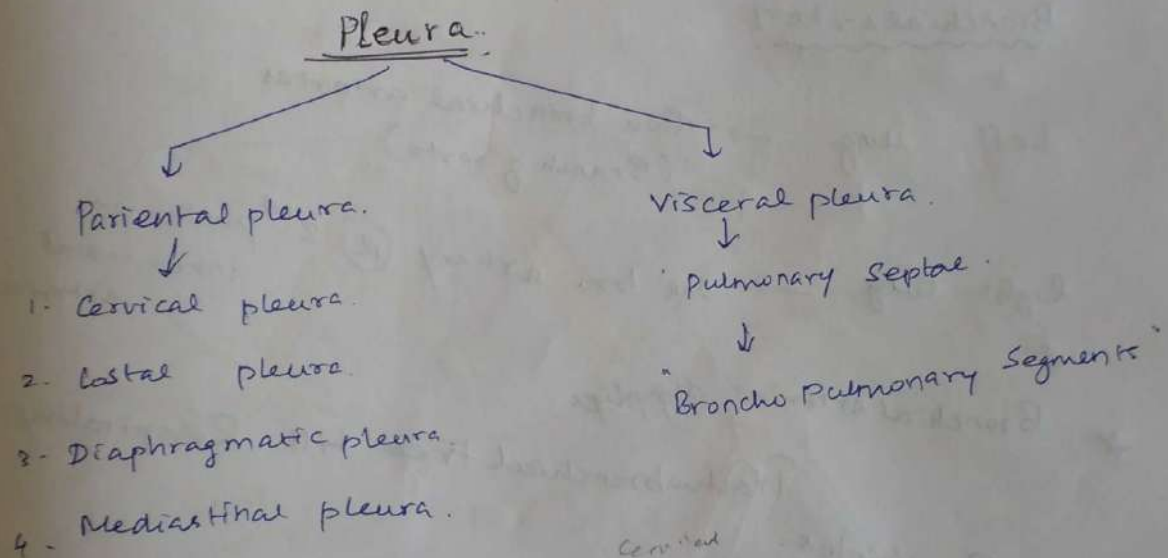 Pleura..
Pariental pleura.
1. Cervical pleura.
2. Costal pleura.
3. Diaphragmatic pleura.
4. Mediastinal pleura.
Visceral pleura.
Pulmonary Septae.
"Broncho Pulmonary Segments"
Cervical